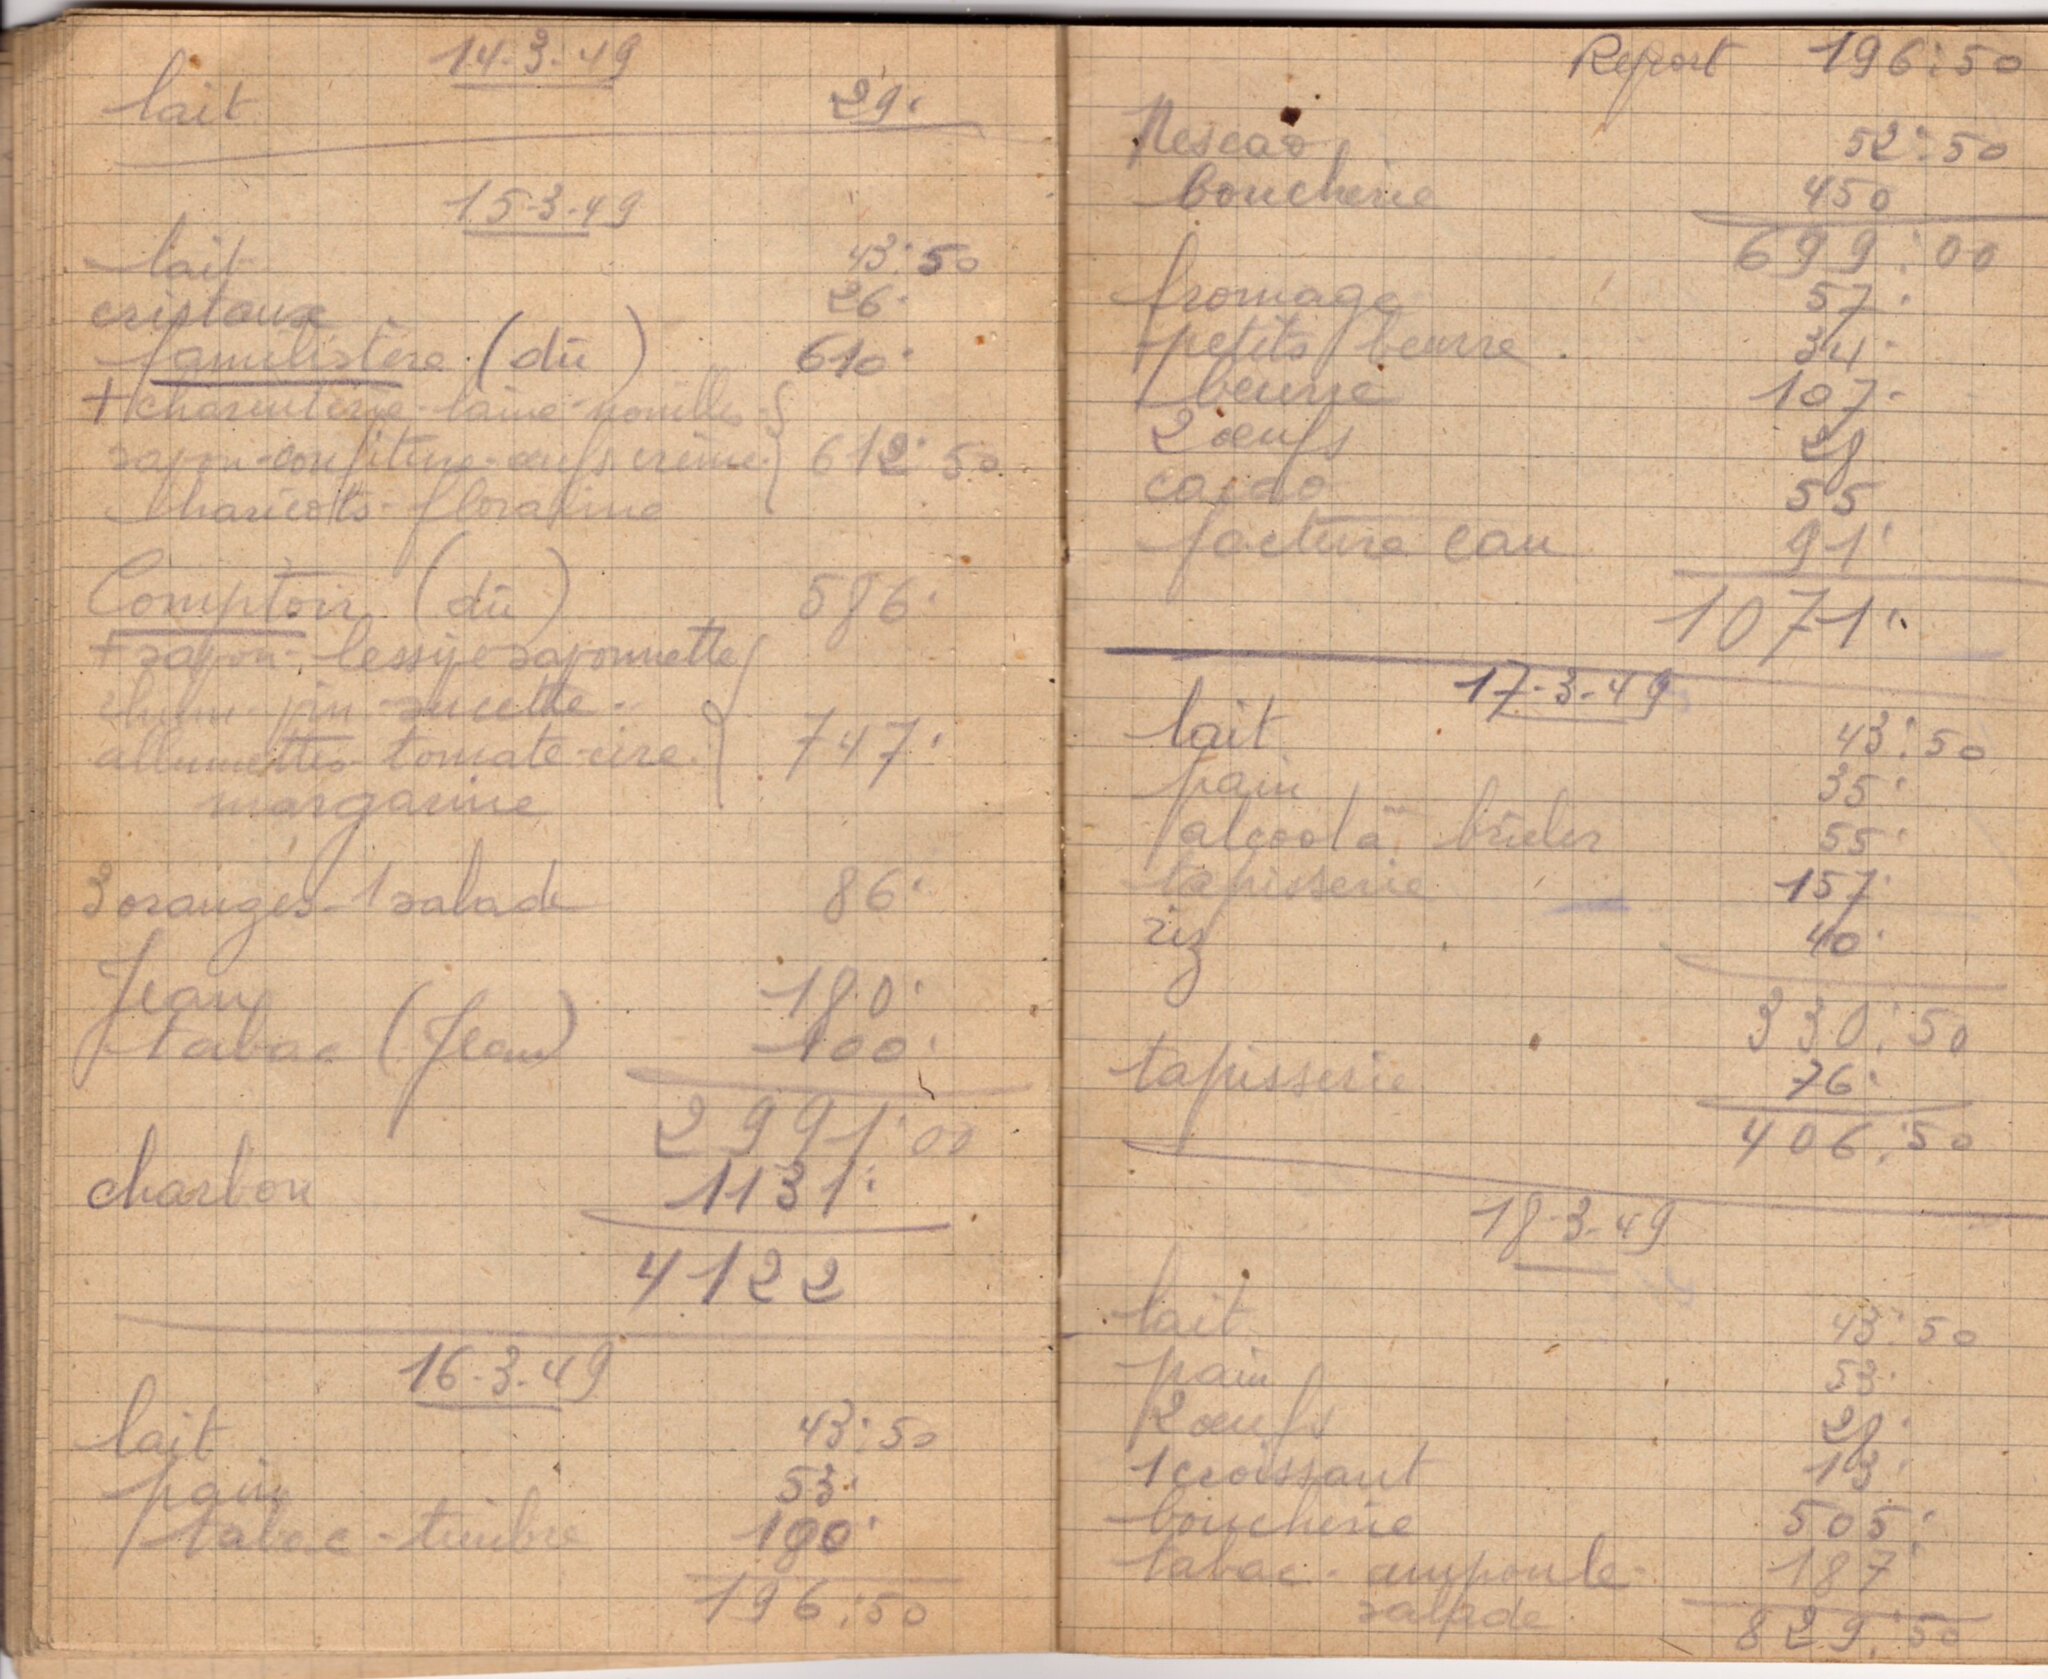 14.3.49
lait 29.
15-3-49
lait 43:50
cristaux 26.
familistère (dû) 610.
+ charcuterie - laine - nouilles -
savon - confiture - œufs crème 612:50
haricots - floraline
Comptoir (dû) 586.
+ savon - lessive savonnette
pin - sucette -
allumettes - tomate - cire 747.
margarine
3 oranges - 1 salade 86.
Jean 180.
tabac (Jean) 100.
2991:00
charbon 1131:
4122
16.3.49
lait 43:50
pain 53.
tabac - timbre 100.
196:50
Report 196:50
Nescao 52:50
boucherie 450
699:00
fromage 57.
petits beurre 34.
beurre 107.
2 œufs 28
cacao 55
facture eau 91.
1071.
17-3-49
lait 43:50
pain 35.
alcool à brûler 55.
tapisserie 157.
riz 40.
330:50
tapisserie 76.
406:50
18-3-49
lait 43:50
pain 53.
2 œufs 28.
1 croissant 13.
boucherie 505.
tabac - ampoule - 187.
salade 829:50